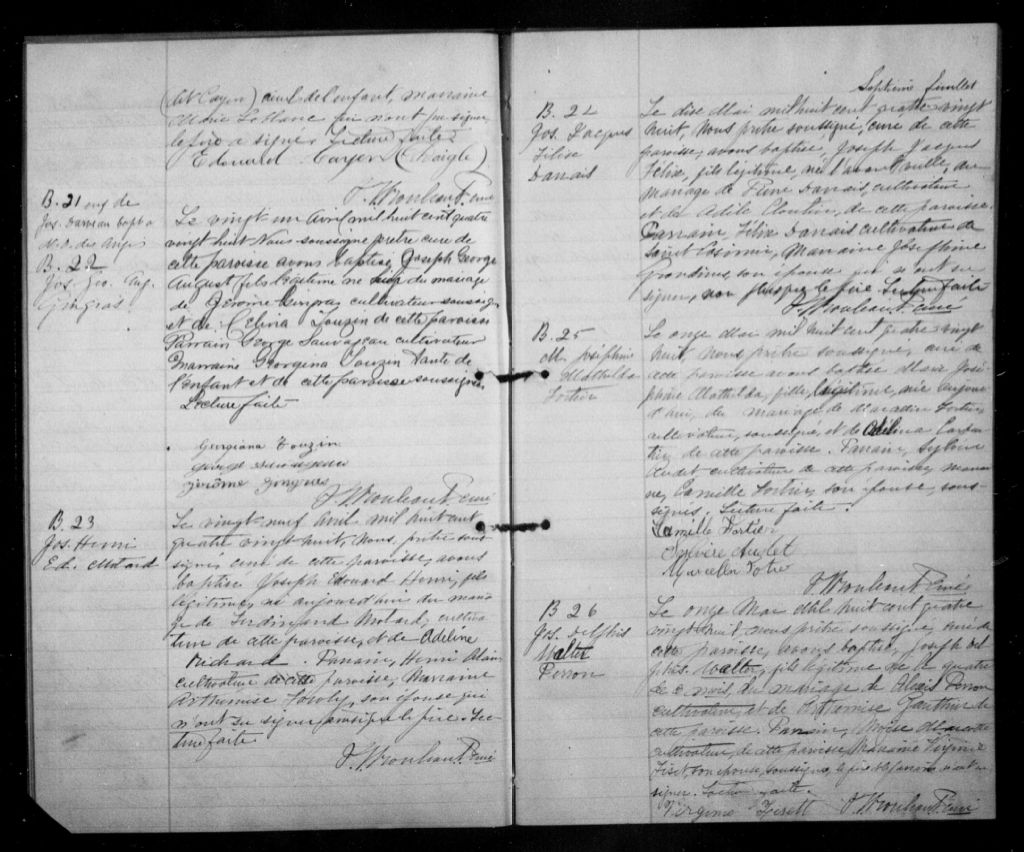 aieul de l'enfant, marraine
Marie Leblanc qui n'ont pu signer
le père a signé. Lecture faite
Edouard Cayer (Daigle)
Ptre curé
B. 21 en de
Jos. Daneau bapt a
N. D. des Anges
B. 22
Jos. Geo. Aug.
Gingras
Le vingt un Avril mil huit cent quatre
vingt huit Nous soussigné prêtre curé de
cette paroisse avons baptisé Joseph George
August fils légitime né hier du mariage
de Jérôme Gingras cultivateur soussigné
et de Celina Touzin de cette paroisse
Parrain George Sauvageau cultivateur
Marraine Georgina Touzin tante de
l'enfant et de cette paroisse soussignés.
Lecture faite
Georgiana Touzin
George Sauvageau
Jérôme Gingras
Ptre curé
B. 23
Jos. Henri
Ed. Motard
Le vingt neuf Avril mil huit cent
quatre vingt huit, Nous, prêtre sous
signé, curé de cette paroisse, avons
baptisé Joseph Edouard Henri, fils
légitime, né aujourd'hui du maria
ge de Ferdinand Motard, cultiva
teur de cette paroisse, et de Adeline
Richard. Parrain, Henri Alain
cultivateur de cette paroisse, Marraine
Arthemise son épouse qui
n'ont su signer ainsi que le père. Lec
ture faite
Ptre curé
Septième feuillet
B. 24
Jos. Jacques
Félise
Danais
Le dise Mai mil huit cent quatre vingt
huit, Nous prêtre soussigné, curé de cette
paroisse, avons baptisé, Joseph Jacques
Félix, fils légitime, né l'avant veille, du
mariage de Danais, cultivateur
et de Adile Cloutier, de cette paroisse.
Parrain Félix Danais cultivateur de
Saint Casimir, Marraine Joséphine
Grondines son épouse qui n'ont su
signer, non plus que le père. Lecture faite
Ptre curé
B. 25
M. Joséphine
Mathilda
Fortier
Le onze Mai mil huit cent quatre vingt
huit, Nous prêtre soussigné, curé de
cette paroisse avons baptisé Marie José
phine Mathilda, fille légitime, née aujour
d'hui, du mariage de Fortier,
cultivateur, soussigné, et de Adelina
de cette paroisse. Parrain, Sylvère
Audet cultivateur de cette paroisse, marrai
ne, Camille Fortier, son épouse, sous-
signés. Lecture faite.
Camille Fortier
Sylvère Audet
Ptre curé
B 26
Jos. Delphis
Walter
Perron
Le onze Mai Mil huit cent quatre
vingt huit nous prêtre soussigné, curé de
cette paroisse, avons baptisé, Joseph Del
phis. Walter, fils légitime né le quatre
de ce mois, du mariage de Alexis Perron
cultivateur, et de Arthemise Gauthier de
cette paroisse. Parrain, Moïse Marcotte
cultivateur, de cette paroisse, Marraine Virginie
Fiset, son épouse, soussignée, le père et le parrain n'ont su
signer. Lecture faite.
Virginie Fisett
Ptre curé